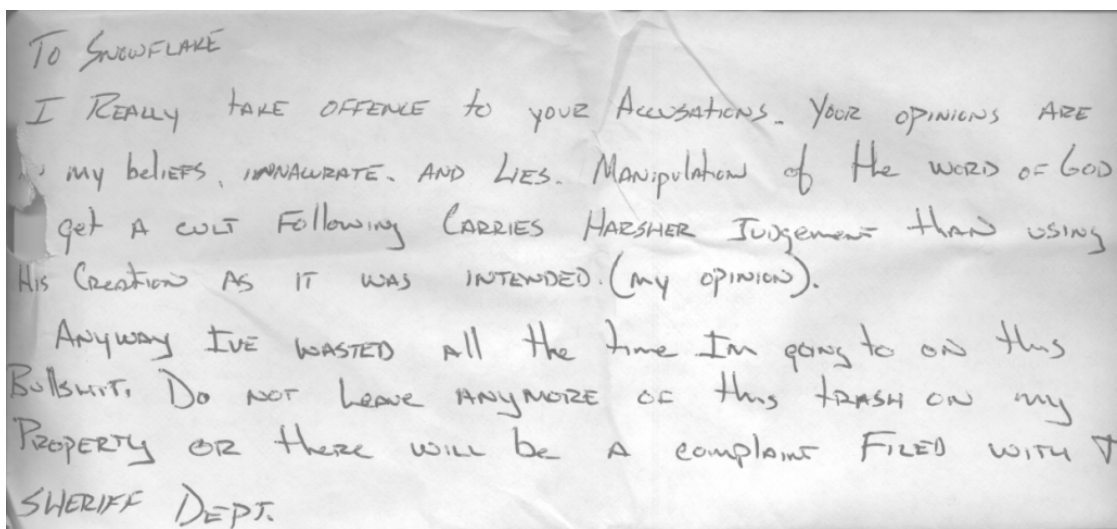 To Snowflake
I Really take offence to your Accusations. Your opinions are
my beliefs, innaccurate. And Lies. Manipulation of the word of God
get a cult Following Carries Harsher Judgement than using
His Creation As it was intended. (my opinion).
Anyway Ive wasted all the time Im going to on this
Bullshit. Do not Leave anymore of this trash on my
Property or there will be a complaint Filed with
Sheriff Dept.